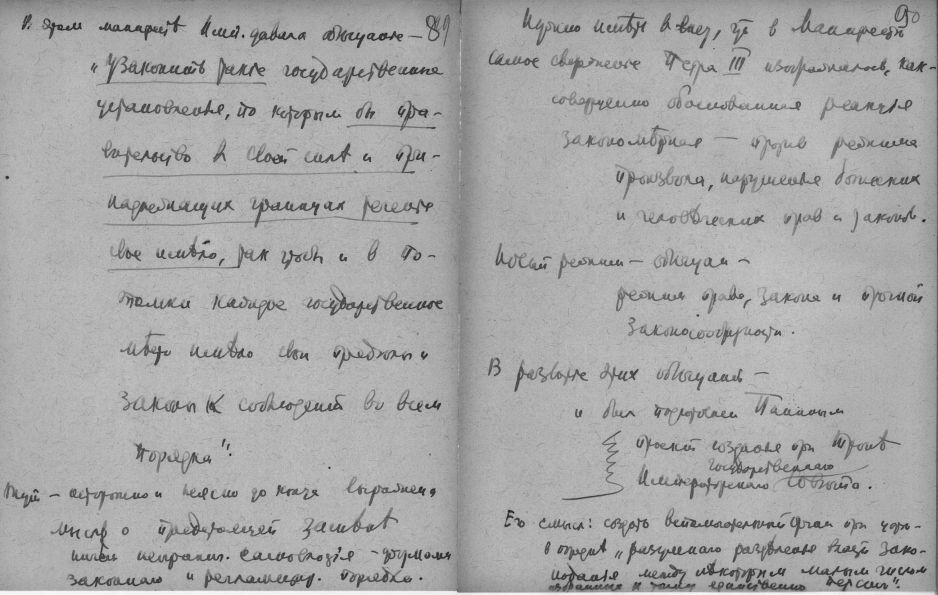 89
В этом манифесте Имп. давала обещание —
„Узаконить такие государственные
установления, по которым бы пра-
вительство в своей силе и при-
надлежащих границах течение
свое имѣло, так чтобы и в по-
томки каждое государственное
мѣсто имѣло свои предѣлы и
законы к соблюдению во всем
порядка".
— осторожно и неясно до конца выражена
мысль о предстоящей замѣнѣ
самовластья — формами
законнаго и регламентир. порядка.
90
Нужно имѣть в виду, что в Манифестѣ
самое свержение Петра III изображалось, как
совершенно обоснованная реакция
закономѣрная — против режима
произвола, нарушения божеских
и человѣческих прав и законов.
Новый режим — обѣщан —
режим права, закона и прочной
законосообразности.
В развитие этих обѣщаний —
и был подготовлен Паниным
проект создания при Тронѣ
государственнаго
Императорскаго Совѣта.
Его смысл: создать вспомогательный орган при
„разумнаго раздѣления власти зако-
нодания между нѣкоторым малым числом
избранных к тому единственно персон".